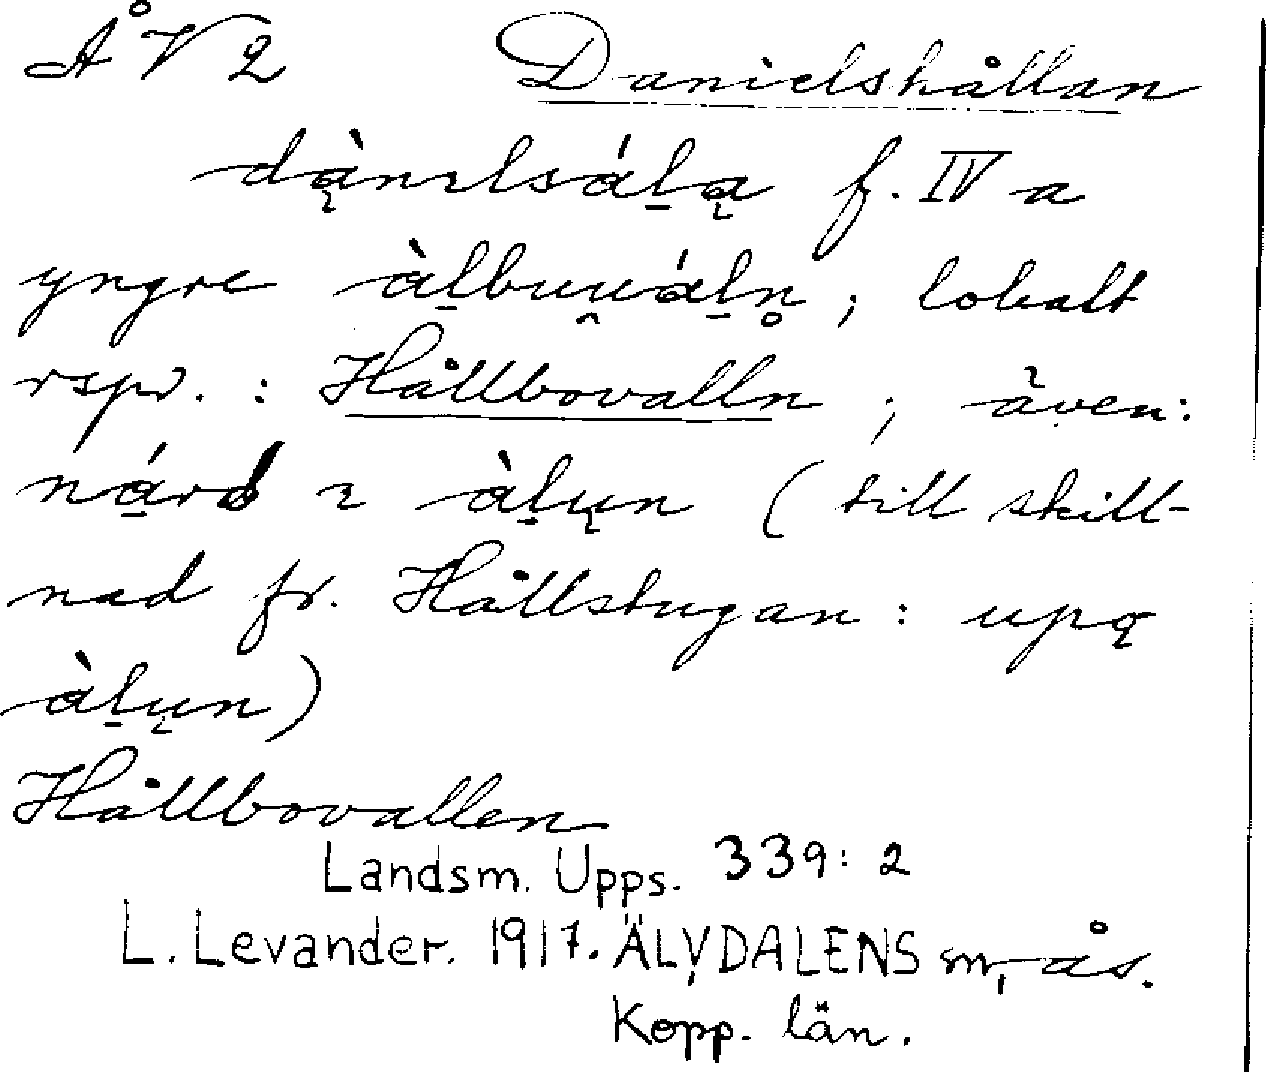 ÅV2 Danielshållan
dą̀nɪlsáḷą f. IV a
yngre àḷbuu̯áḷn̥; lokalt
rspr. : Hållbovalln ; även:
nárd ɪ àḷųn (till skill-
nad fr. Hållstugan : upą
àḷųn)
Hållbovallen
Landsm. Upps. 339: 2
L. Levander. 1917. ÄLVDALENS sn, ås.
Kopp. län.